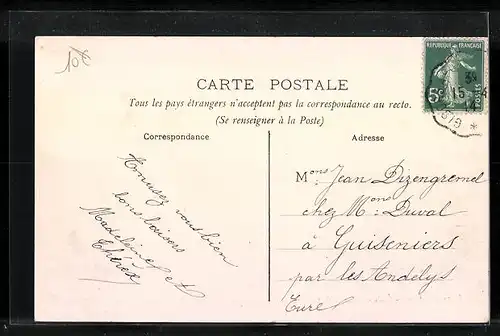 10€
RÉPUBLIQUE FRANÇAISE
5c
CARTE POSTALE
Tous les pays étrangers n'acceptent pas la correspondance au recto.
(Se renseigner à la Poste)
Correspondance
Amusez vous bien
bons baisers
Madeleine et
Thérèse
Adresse
Mons Jean Dizengremel
chez Mons Duval
à Guiseniers
par les Andelys
Eure